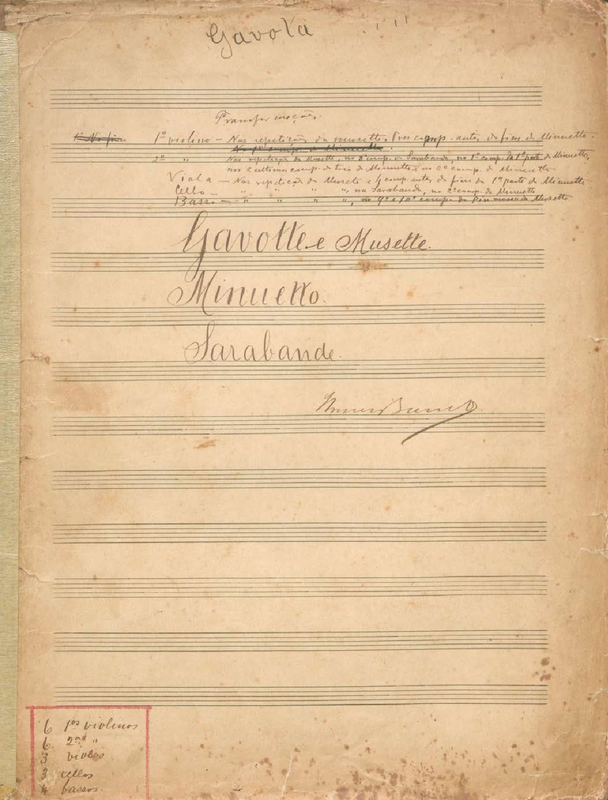 Gavota
1º violino - Nas repetições da musette, tres comp. antes do fim do Minuetto.
2º " Nas repetições da Musette, no 8º comp. da Sarabanda, no 1º comp. da 1ª parte do Minuetto,
nos 2 ultimos comp. do trio do Minuetto e no 2º comp. do Minuetto
Viola - Nas repetições da Musette e comp. antes do fim da 1ª parte do Minuetto
Cello - " " " ", na Sarabanda, no 2º comp. do Minuetto
Basso - " " " ", no 9º e 10º comp. da Musette
Gavotte e Musette.
Minuetto.
Sarabande.
6 1ºs violinos
6 2ºs "
3 violas
3 cellos
4 bassos